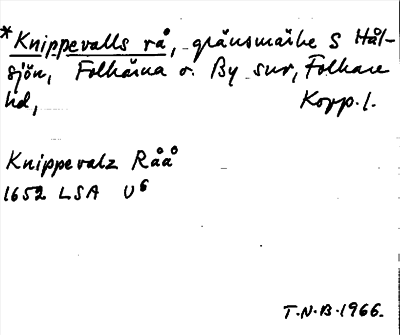 *Knippevalls rå, gränsmärke S Hål-
sjön, Folkärna o. By snr, Folkare
hd, Kopp. l.
Knippevalz Råå
1652 LSA U6
T.N.B. 1966.